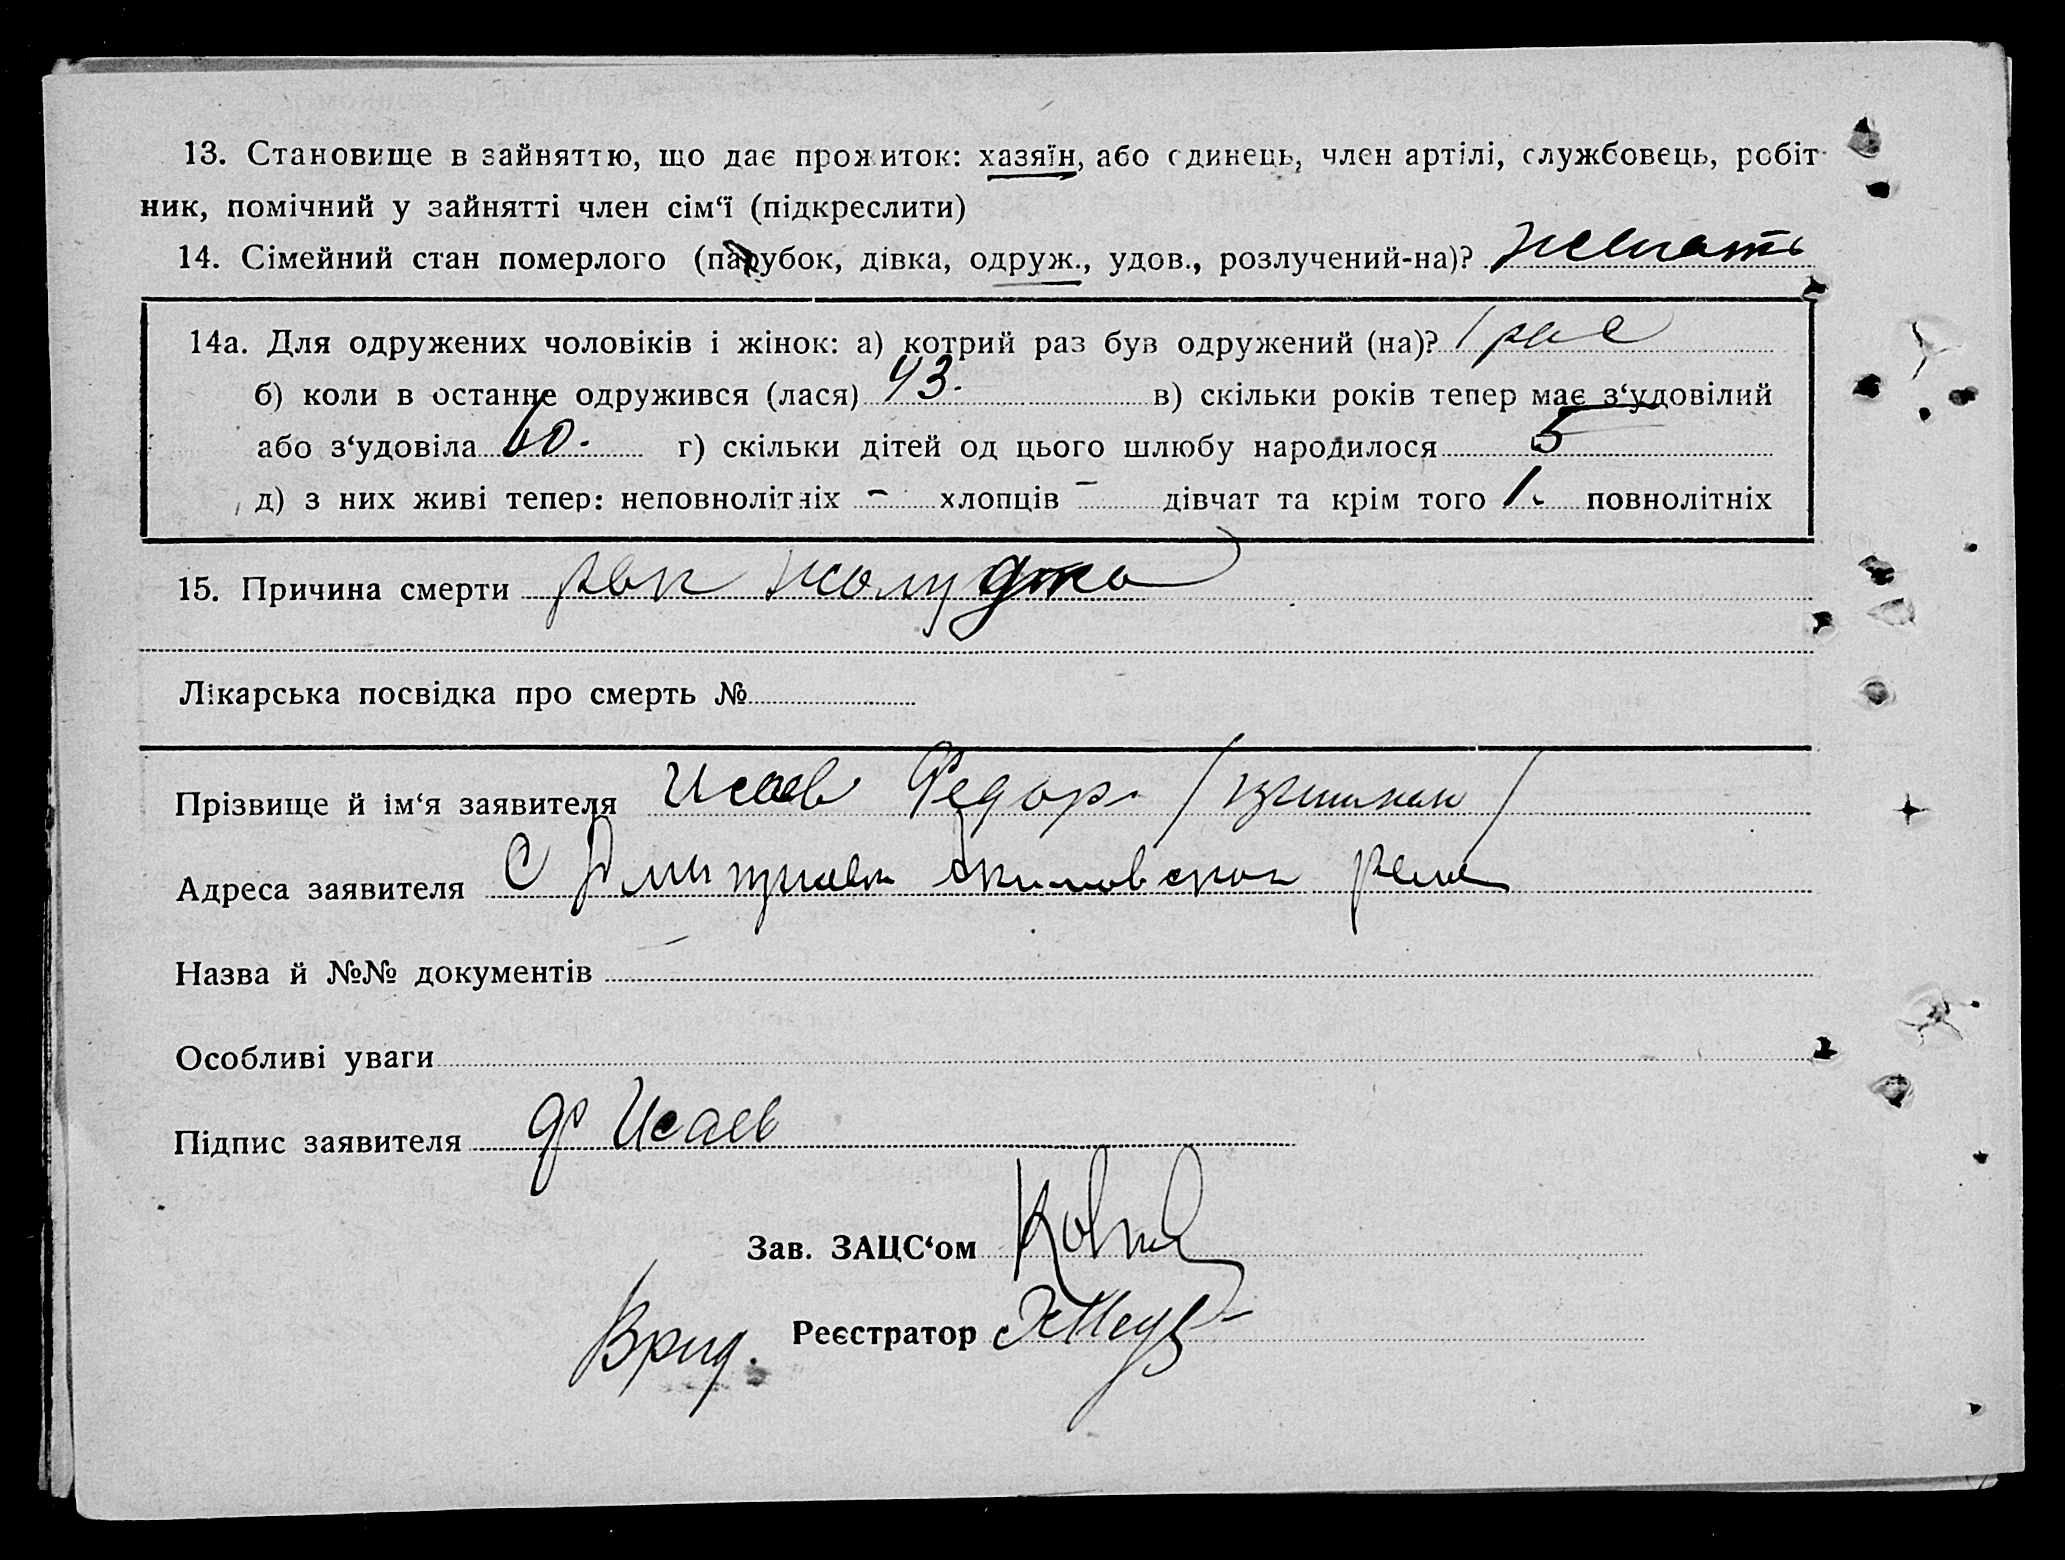 13. Становище в зайняттю, що дає прожиток: хазяїн, або єдинець, член артілі, службовець, робіт-
ник, помічний у зайнятті член сім‘ї (підкреслити)
14. Сімейний стан померлого (парубок, дівка, одруж., удов., розлучений-на)? женать
14а. Для одружених чоловіків і жінок: а) котрий раз був одружений (на)? 1 раз
б) коли в останнє одружився (лася) 43. в) скільки років тепер має з‘удовілий
або з‘удовіла 60. г) скільки дітей од цього шлюбу народилося 5
д) з них живі тепер: неповнолітніх - хлопців - дівчат та крім того 1. повнолітніх
15. Причина смерти рак желудка
Лікарська посвідка про смерть №
Прізвище й ім‘я заявителя Исаев Федор
Адреса заявителя С Дмитриевка Акимовском
Назва й №№ документів
Особливі уваги
Підпис заявителя Ф Исаев
Зав. ЗАЦС‘ом
Врид. Реєстратор